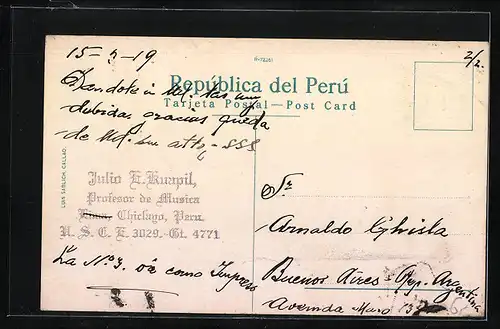 15-3-19
2/2.
R-72261
República del Perú
Tarjeta Postal—Post Card
Dandole á Ud. las
debidas gracias queda
de Ud. su atto, SSS
Julio E. Knapil,
Profesor de Musica
Lima, Chiclayo, Peru
U. S. C. E. 3029.-Gt. 4771
La Nº 3. va como Impreso
Sr
Arnaldo Ghisla
Buenos Aires Rep. Argentina
Avenida Mayo
LUIS SABLICH, CALLAO.